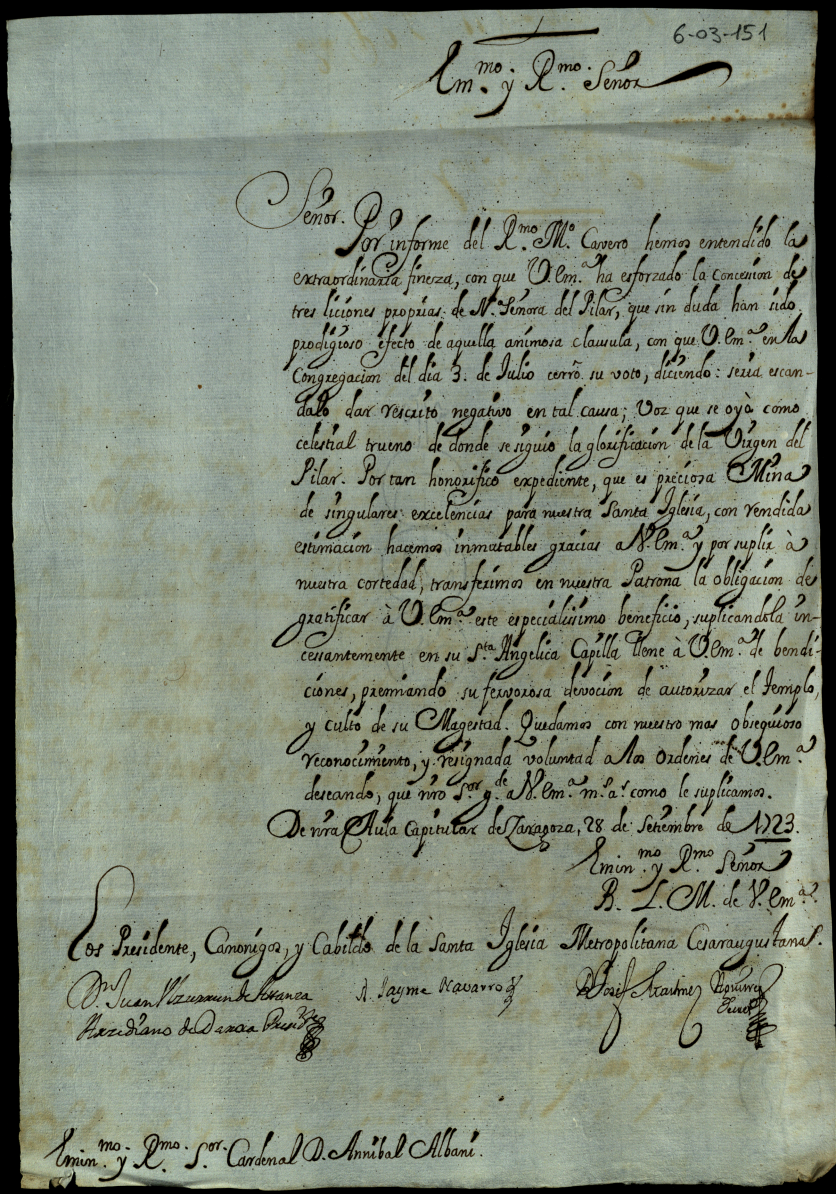 6-03-151
Em.mo y R.mo Señor
Señor.
Por informe del R.mo M.o Cavero hemos entendido la
extraordinaria fineza, con que V.Em.a ha esforzado la concession de
tres liciones proprias de N.a Señora del Pilar, que sin duda han sido
prodigioso efecto de aquella animosa clausula, con que V.Em.a en la
Congregacion del dia 3. de Iulio cerrò su voto, diciendo: seria escan-
dalo dar rescrito negativo en tal causa; Voz que se oyò como
celestial trueno de donde se siguio la glorificacion de la Virgen del
Pilar. Por tan honorifico expediente, que es preciosa Mina
de singulares excelencias para nuestra Santa Iglesia, con rendida
estimacion hacemos inmutables gracias a V.Em.a y por suplir à
nuestra cortedad, transferimos en nuestra Patrona la obligacion de
gratificar à V.Em.a este especialissimo beneficio, suplicandola in-
cessantemente en su S.ta Angelica Capilla llene à V.Em.a de bendi-
ciones, premiando su fervorosa devocion de autorizar el Templo,
y culto de su Magestad. Quedamos con nuestro mas obsequioso
reconocimiento, y resignada voluntad a los ordenes de V.Em.a
deseando, que nro S.or g.de a V.Em.a m.s a.s como le suplicamos.
De nra Aula Capitular de Zaragoza, 28 de Setiembre de 1723.
Emin.mo y R.mo Señor
B. L. M. de V.Em.a
Los Presidente, Canonigos, y Cabildo de la Santa Iglesia Metropolitana Cesaraugustana.
D.n Juan
D. Jayme Navarro
D. Josef
Arzediano de Daroca Presid.te
Emin.mo y R.mo S.or Cardenal D. Annibal Albani.